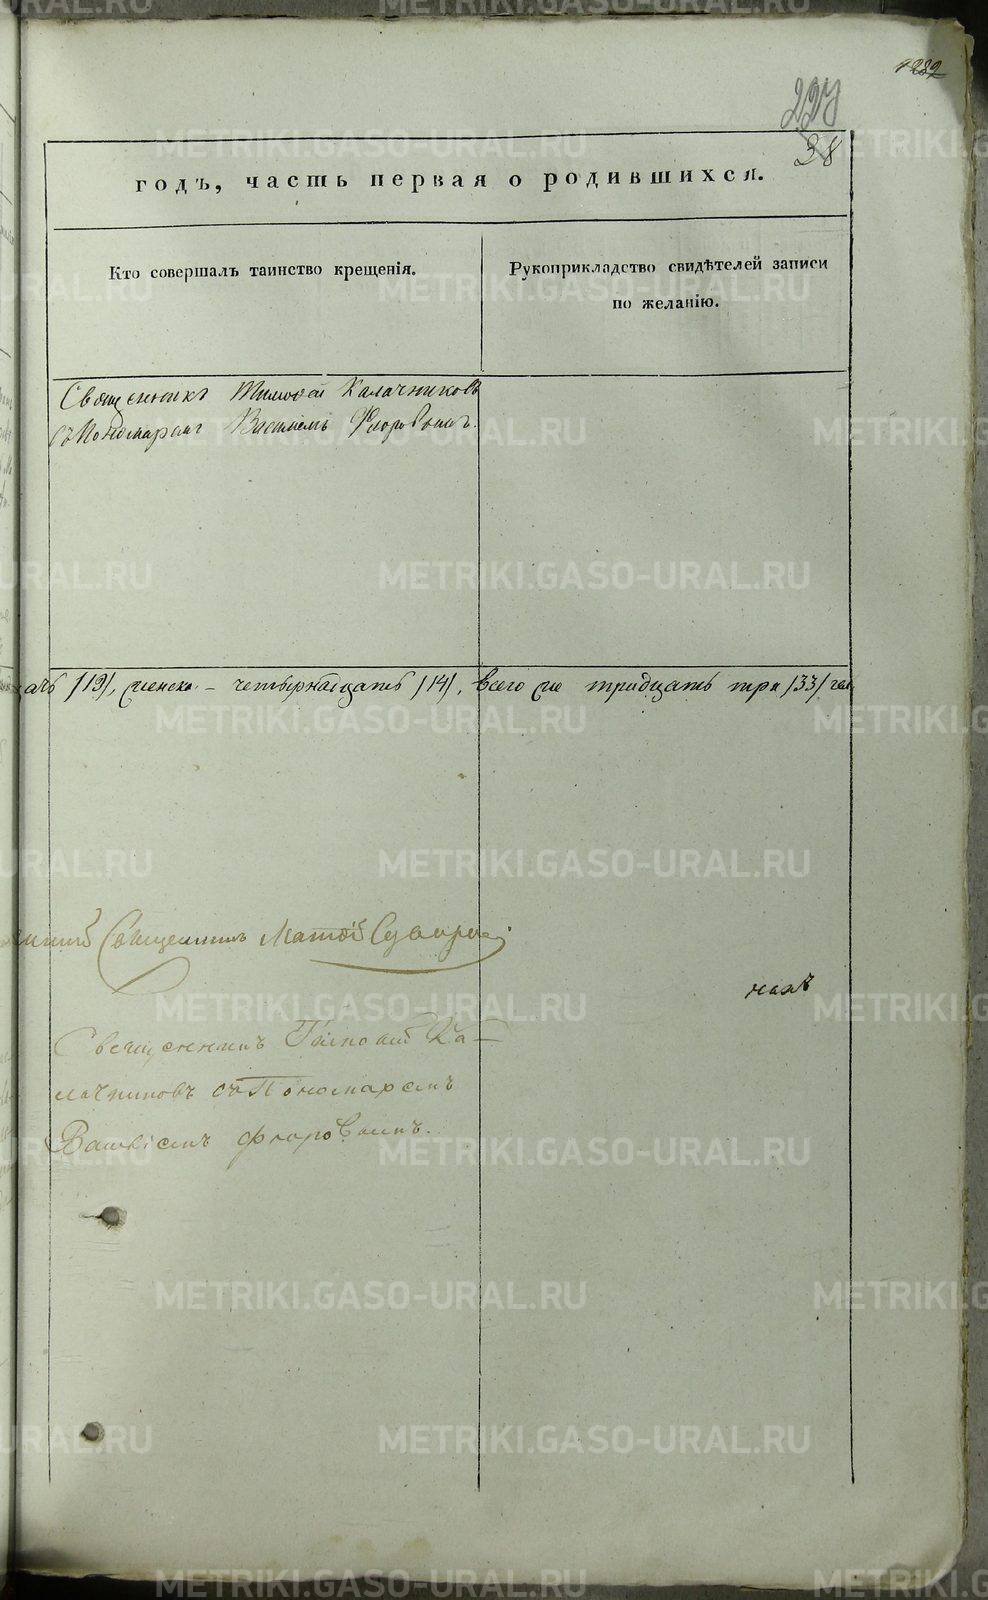 1282
227
38
годъ, часть первая о родившихся.
Кто совершалъ таинство крещенія.
Рукоприкладство свидѣтелей записи
по желанію.
Священникъ Тимофей Калачниковъ
съ Пономаремъ Василіемъ Флоровымъ.
/19/, женска – четырнатцать /14/, всего же тридцать три /33/ чел.
Священникъ Матѳій
нахъ
Священникъ Тимофей Ка-
лачниковъ съ Пономаремъ
Василіемъ Флоровымъ.
METRIKI.GASO-URAL.RU